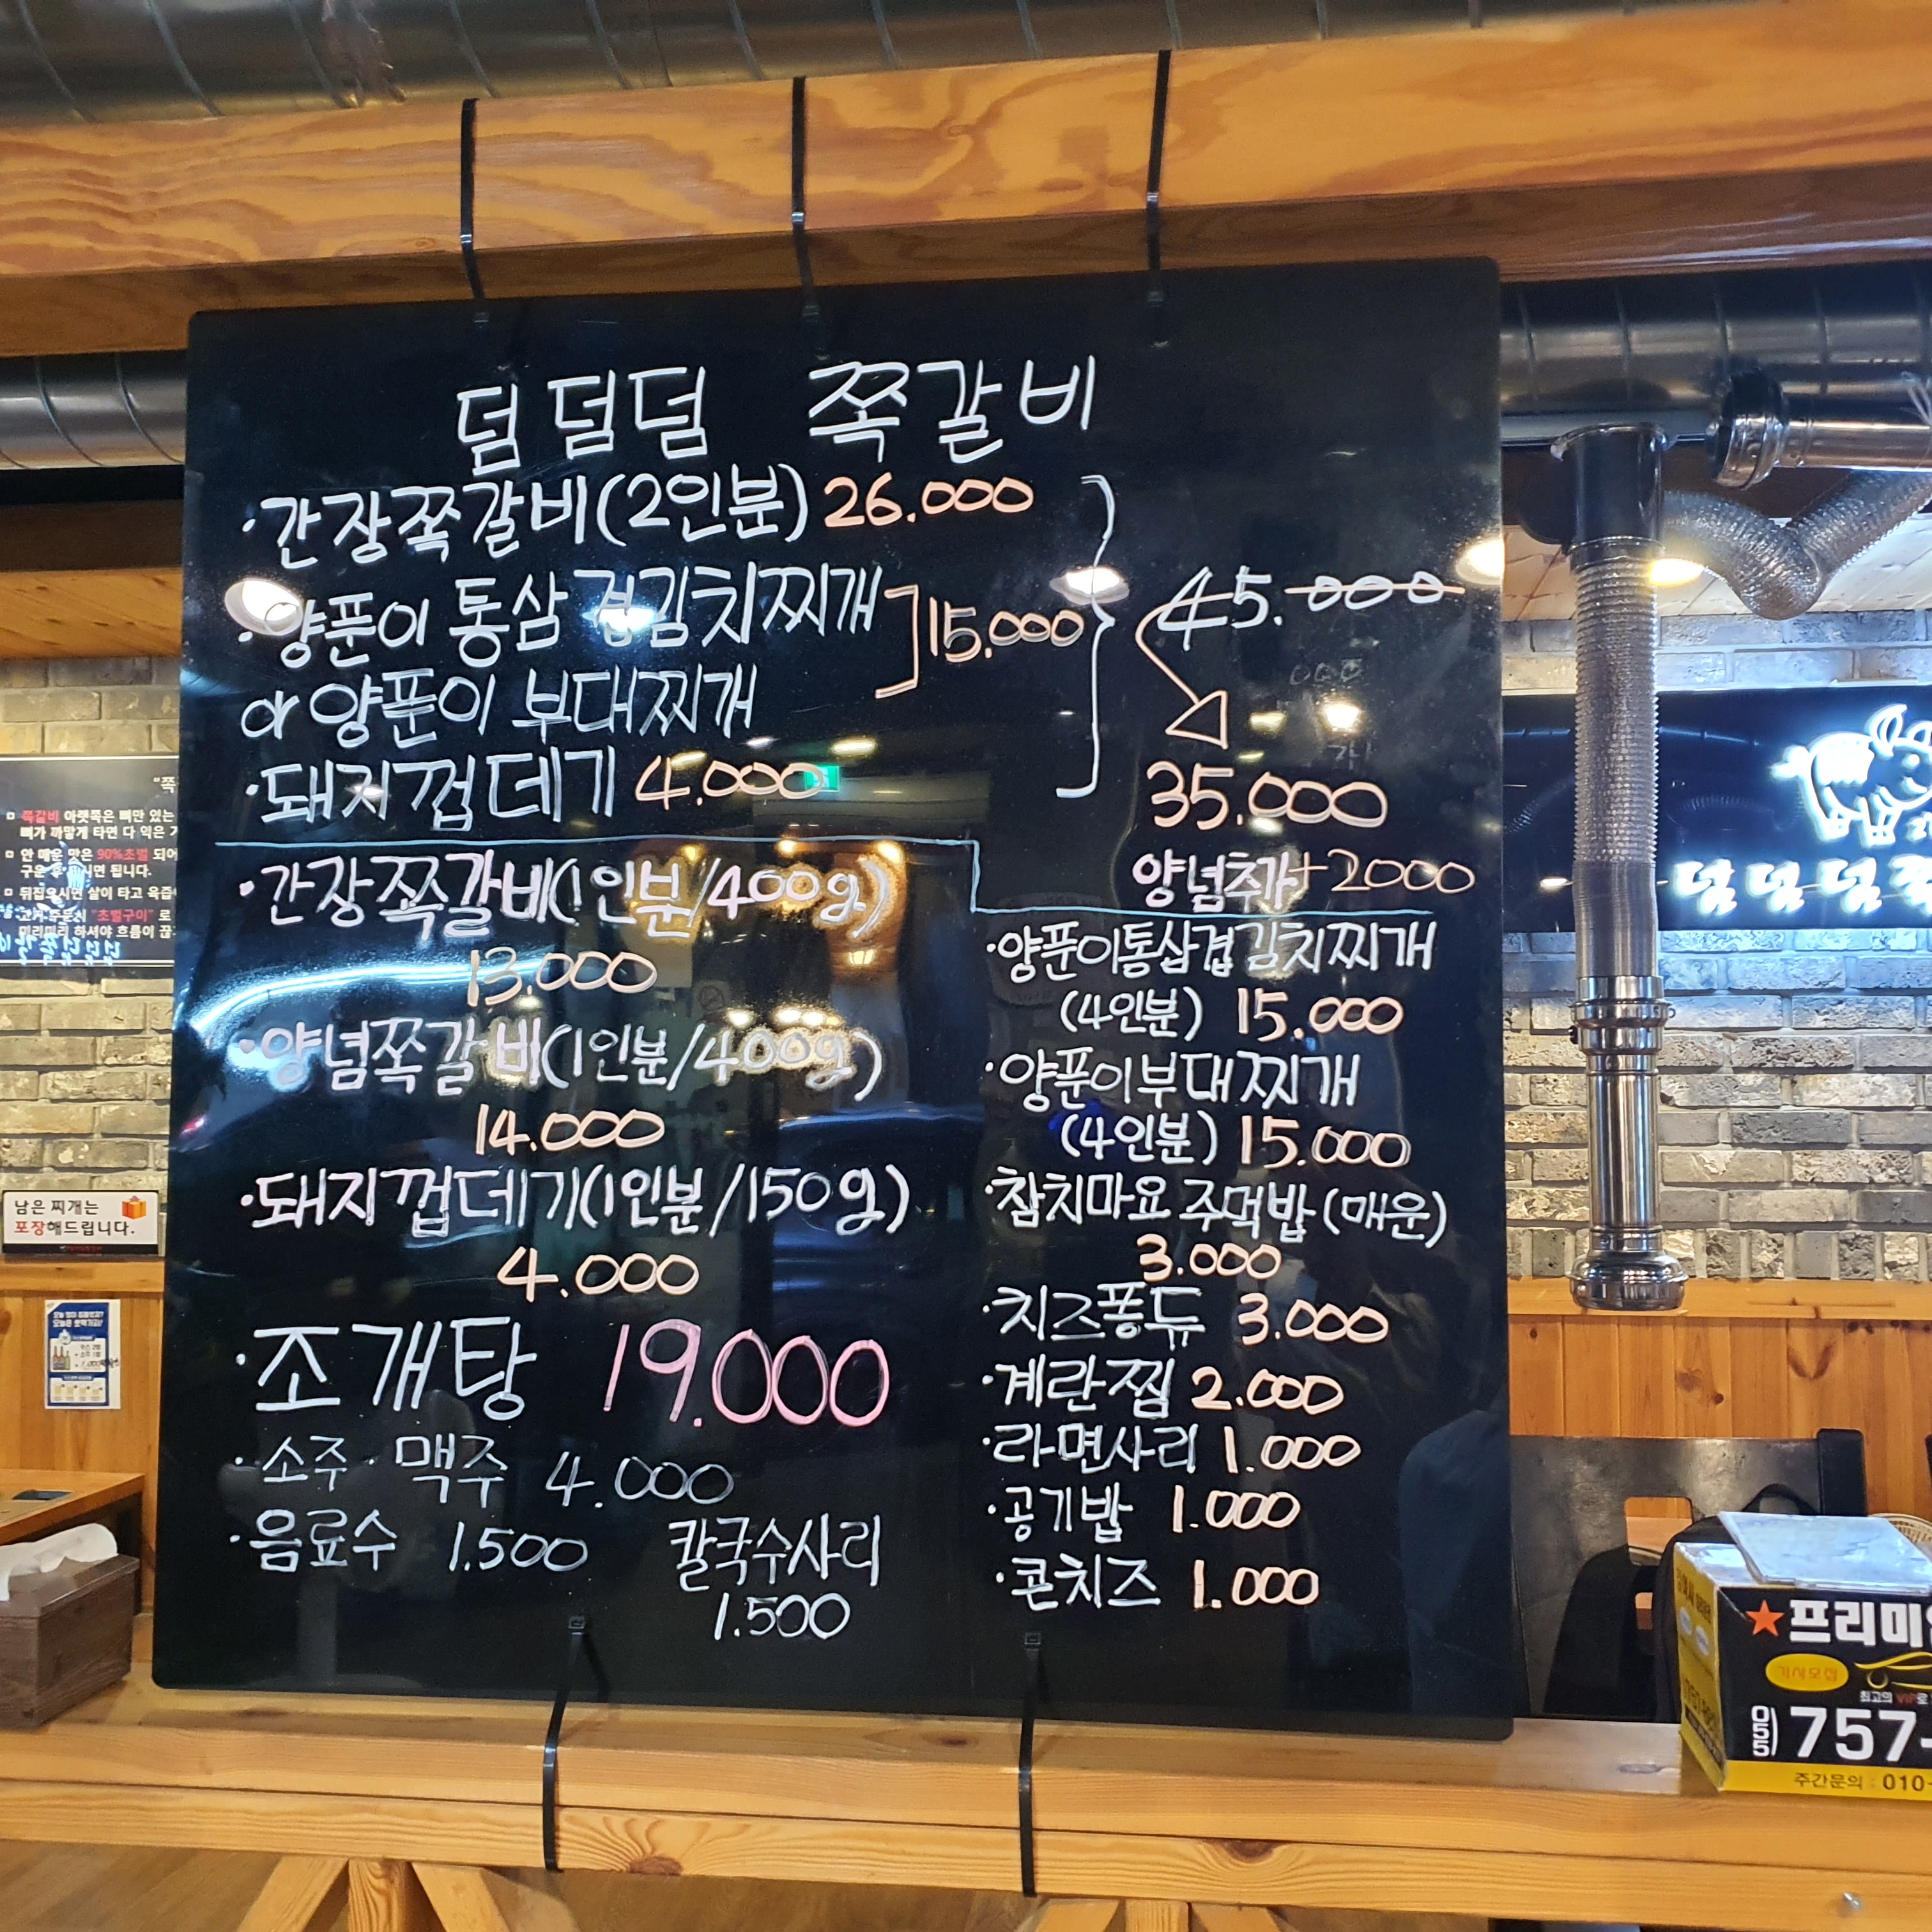 덤덤덤 쪽갈비
·간장쪽갈비(2인분) 26.000
·양푼이 통삼겹김치찌개
or 양푼이 부대찌개
15.000
·돼지껍데기 4.000
45.000
35.000
양념추가+2000
·간장쪽갈비(1인분/400g)
13.000
·양념쪽갈비(1인분/400g)
14.000
·돼지껍데기(1인분/150g)
4.000
·조개탕 19.000
·소주·맥주 4.000
·음료수 1.500
칼국수사리
1.500
·양푼이통삼겹김치찌개
(4인분) 15.000
·양푼이부대찌개
(4인분) 15.000
·참치마요 주먹밥(매운)
3.000
·치즈퐁듀 3.000
·계란찜 2.000
·라면사리 1.000
·공기밥 1.000
·콘치즈 1.000
쪽갈비 아랫쪽은 뼈만 있는
뼈가 까맣게 타면 다 익은
안 매운 맛은 90%초벌 되어
"초벌구이" 로
남은 찌개는
포장해드립니다.
덤덤덤
프리미
기사모집
최고의 VIP로
055) 757-
주간문의 : 010-